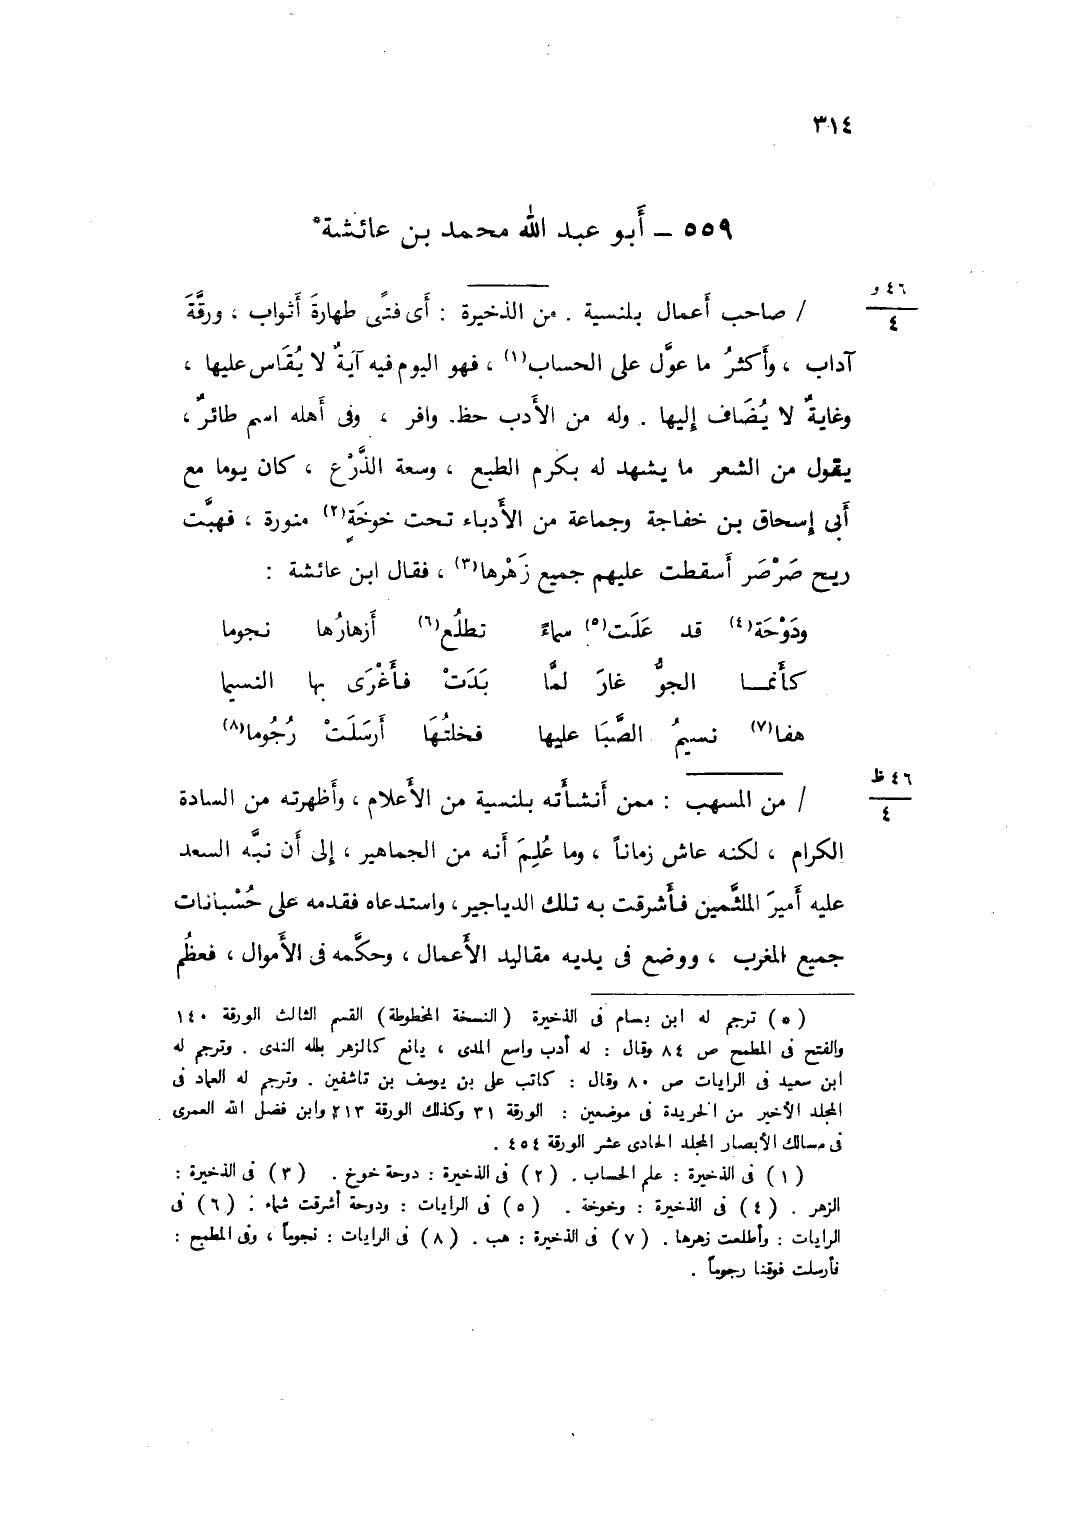 ٣١٤
٥٥٩ - أَبو عبد الله محمد بن عائشة*
٤٦ و
٤
/ صاحب أَعمال بلنسية . من الذخيرة : أَى فتًى طهارةَ أَثواب ، ورقَّةَ
آداب ، وأَكثرُ ما عوَّل على الحساب(١) ، فهو اليوم فيه آيَةٌ لا يُقَاس عليها ،
وغايةٌ لا يُضَاف إليها . وله من الأَدب حظ. وافر ، وفى أَهله اسم طائرٌ ،
يقول من الشعر ما يشهد له بكرم الطبع ، وسعة الذَّرْع ، كان يوما مع
أَبى إسحاق بن خفاجة وجماعة من الأُدباء تحت خوخَةٍ(٢) منورة ، فهبَّت
ريح صَرْصَر أَسقطت عليهم جميع زَهْرها(٣) ، فقال ابن عائشة :
ودَوْحَة(٤) قد عَلَت(٥) سماءً تطلُع(٦) أَزهارُها نجوما
كأَنما الجوُّ غارَ لمَّا بَدَتْ فأَغْرَى بها النسيما
هفا(٧) نسيمُ الصَّبَا عليها فخلتُهَا أَرسَلَتْ رُجُوما(٨)
٤٦ ظ
٤
/ من المسهب : ممن أَنشأَته بلنسية من الأَعلام ، وأَظهرته من السادة
الكرام ، لكنه عاش زماناً ، وما عُلِمَ أَنه من الجماهير ، إلى أَن نبَّه السعد
عليه أَميرَ الملثَّمين فأَشرقت به تلك الدياجير، واستدعاه فقدمه على حُسْبانات
جميع المغرب ، ووضع فى يديه مقاليد الأَعمال ، وحكَّمه فى الأَموال ، فعظُم
(*) ترجم له ابن بسام فى الذخيرة (النسخة المخطوطة) القسم الثالث الورقة ١٤٠
والفتح فى المطمح ص ٨٤ وقال : له أدب واسع المدى ، يانع كالزهر بلله الندى . وترجم له
ابن سعيد فى الرايات ص ٨٠ وقال : كاتب على بن يوسف بن تاشفين . وترجم له العماد فى
المجلد الأخير من الخريدة فى موضعين : الورقة ٣١ وكذلك الورقة ٢١٣ وابن فضل الله العمرى
فى مسالك الأبصار المجلد الحادى عشر الورقة ٤٥٤ .
(١) فى الذخيرة : علم الحساب . (٢) فى الذخيرة : دوحة خوخ . (٣) فى الذخيرة :
الزهر . (٤) فى الذخيرة : وخوخة . (٥) فى الرايات : ودوحة أشرقت شماء . (٦) فى
الرايات : وأطلعت زهرها . (٧) فى الذخيرة : هب . (٨) فى الرايات : نجوماً ، وفى المطمح :
فأرسلت فوقنا رجوماً .